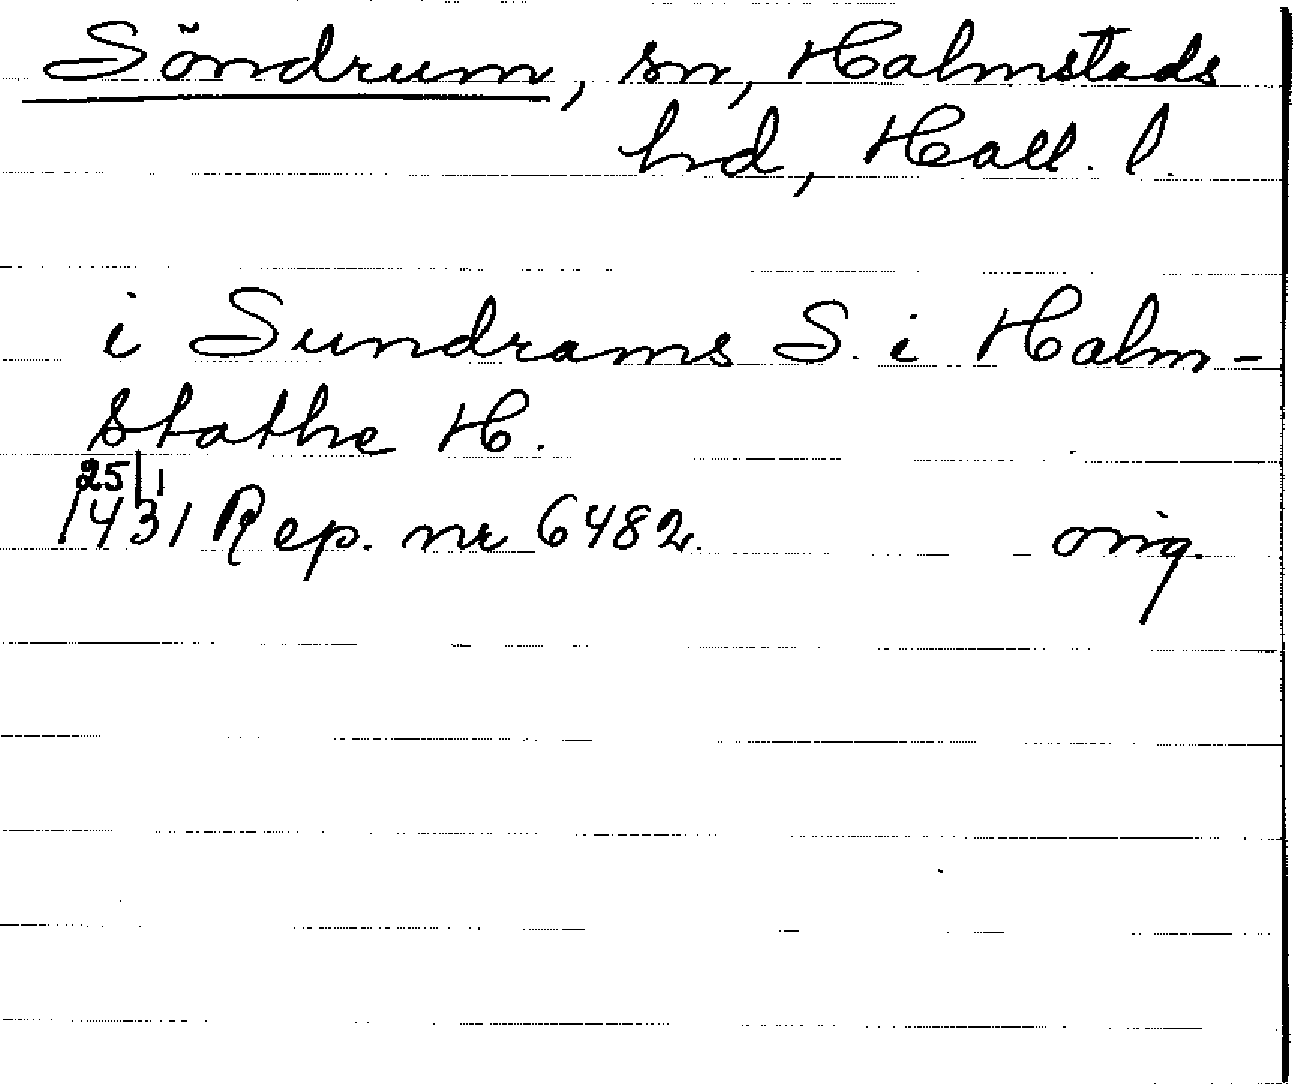 Söndrum, sn, Halmstads
hd, Hall. l.
i Sundrams S. i Halm-
stathe H.
25/1
1431 Rep. nr 6482. orig.